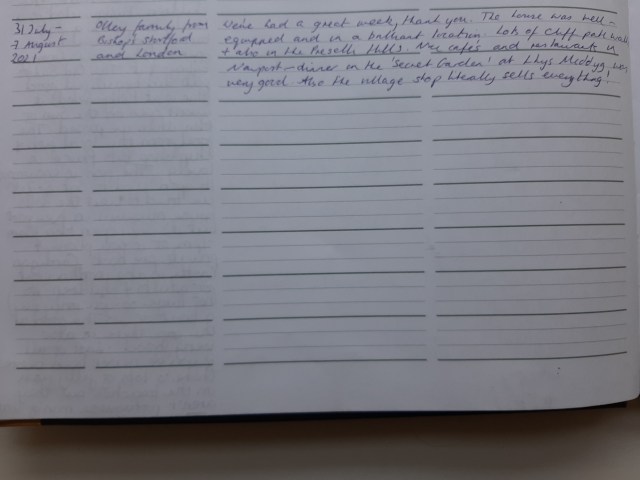 31 July -
7 August
2021
Otley family from
Bishop's Stortford
and London
We've had a great week, thank you. The house was well-
equipped and in a brilliant location. Lots of cliff path walks
+ also in the Preselli Hills. Nice cafés and restaurants in
Newport - dinner in the 'Secret Garden' at Llys Meddyg was
very good. Also the village shop literally sells everything!